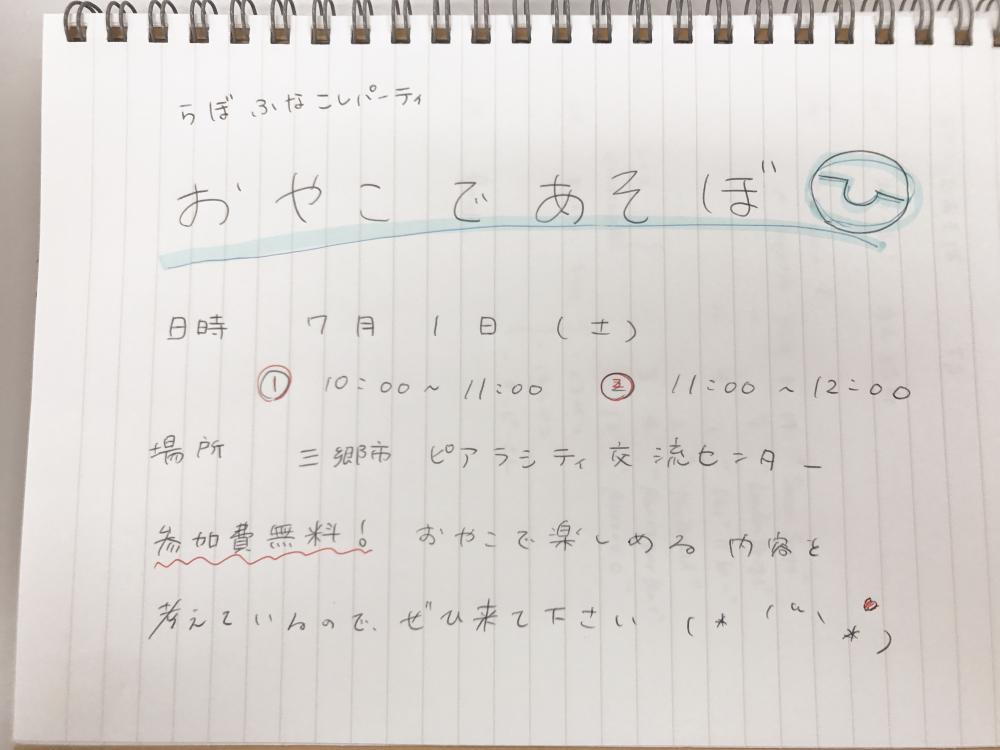 らぼ ふなこしパーティ
おやこであそぼ ひ
日時 7月1日(土)
① 10:00~11:00 ② 11:00~12:00
場所 三郷市 ピアラシティ交流センター
参加費無料! おやこで楽しめる内容を
考えているので、ぜひ来て下さい (* ´ ᵕ ` *)